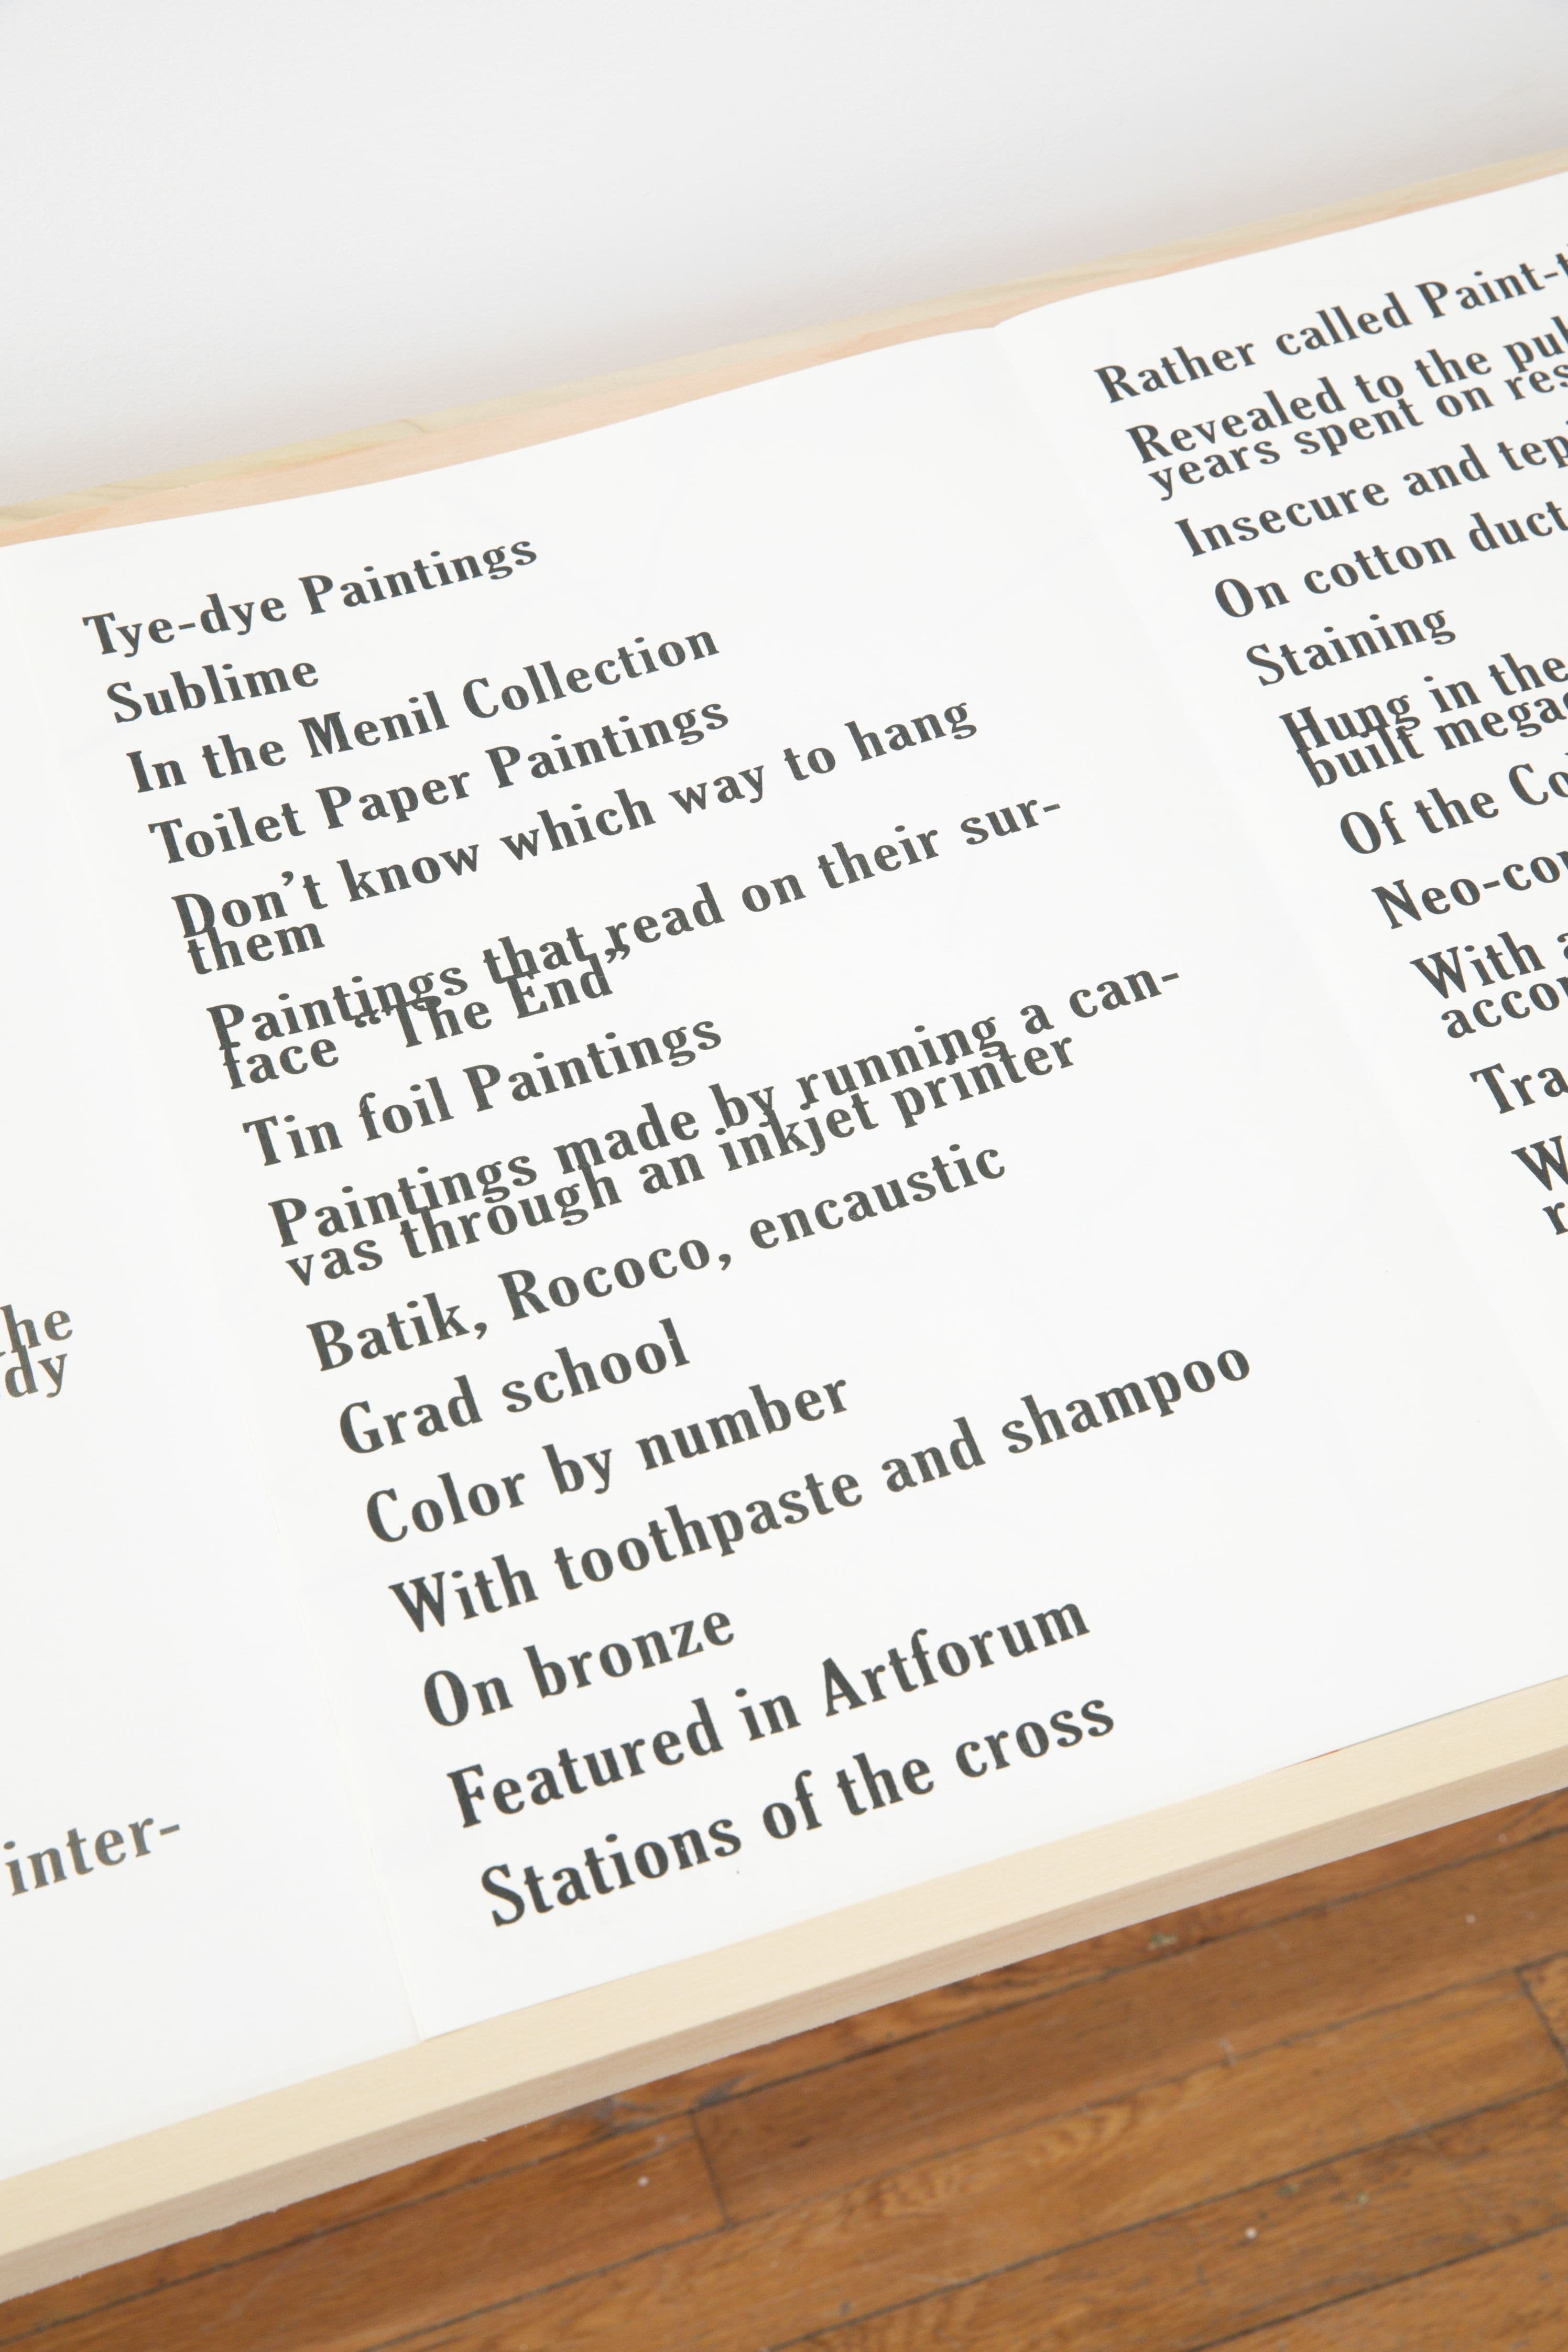 he
dy
inter-
Tye-dye Paintings
Sublime
In the Menil Collection
Toilet Paper Paintings
Don't know which way to hang
them
Paintings that read on their sur-
face “The End”
Tin foil Paintings
Paintings made by running a can-
vas through an inkjet printer
Batik, Rococo, encaustic
Grad school
Color by number
With toothpaste and shampoo
On bronze
Featured in Artforum
Stations of the cross
Rather called Paint-
Revealed to the
years spent on
Insecure and
On cotton duct
Staining
Hung in the
built
Of the
Neo-
With